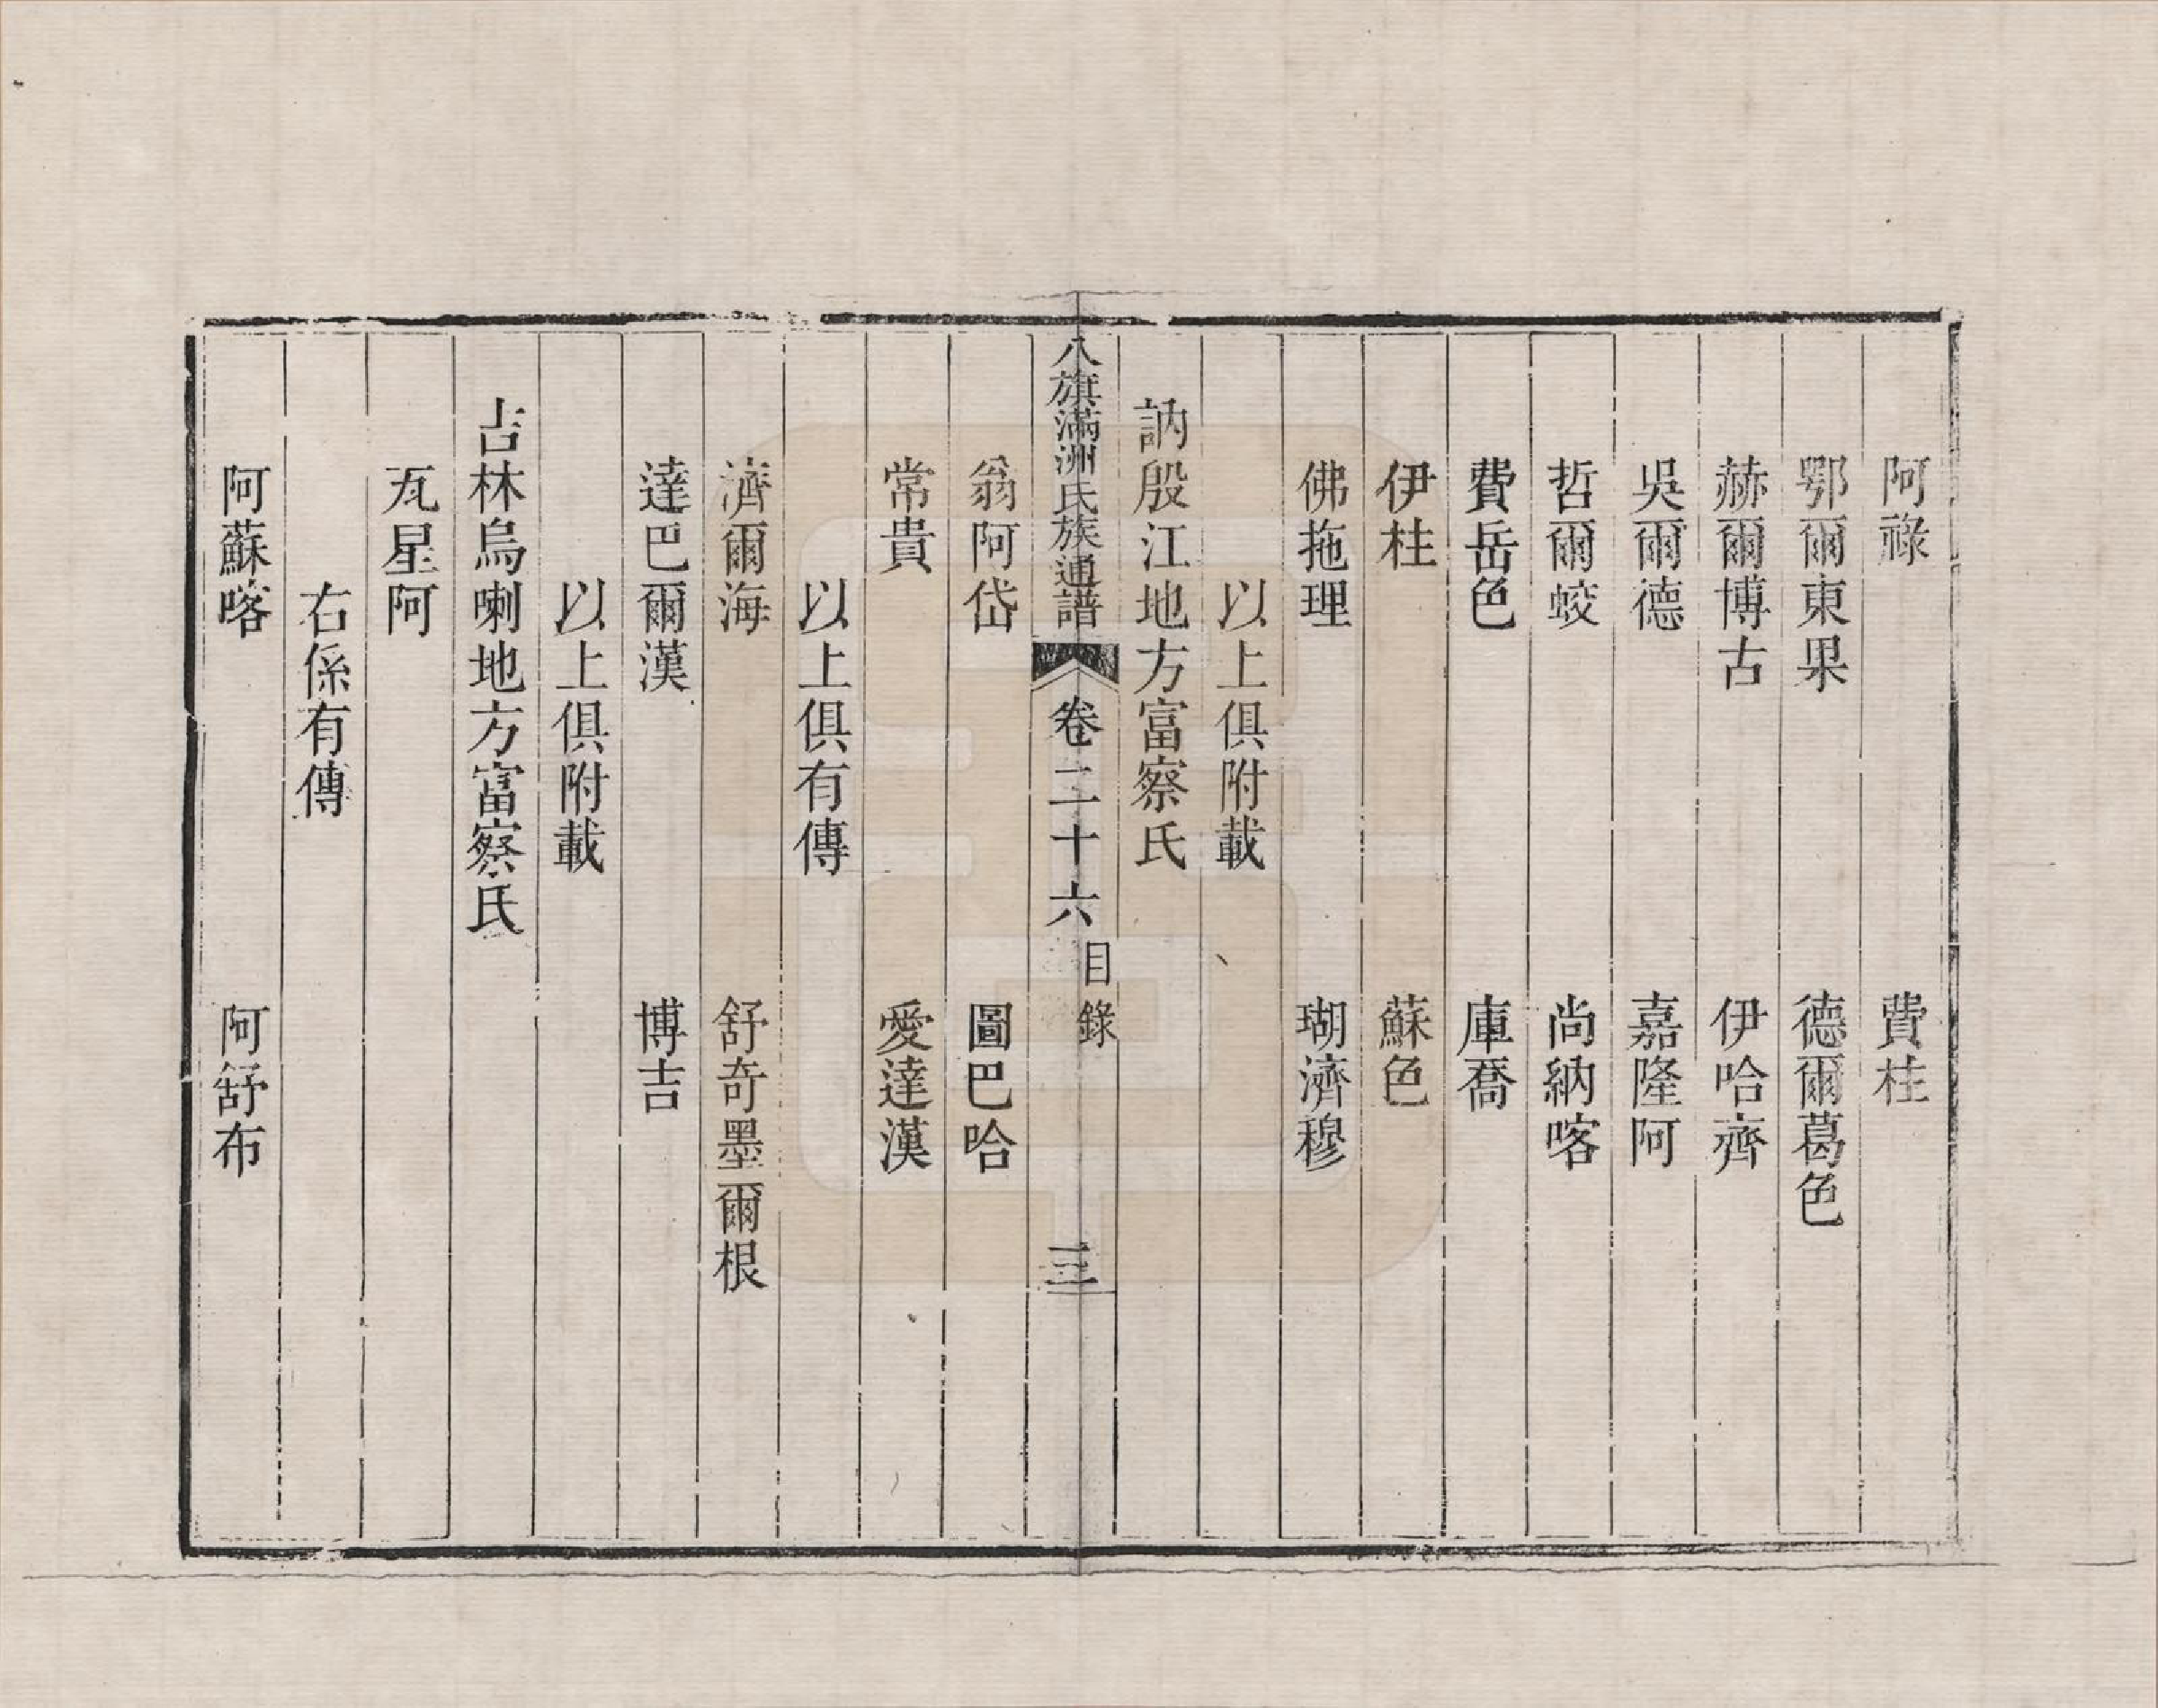 阿祿　費桂
鄂爾東果　德爾葛色
赫爾博古　伊哈齊
吳爾德　嘉隆阿
哲爾蛟　尚納喀
費岳色　庫喬
伊柱　蘇色
佛拖理　瑚濟穆
以上俱附載
訥殷江地方富察氏
八旗滿洲氏族通譜　卷二十六　目錄　三
翁阿岱　圖巴哈
常貴　愛達漢
以上俱有傳
濟爾海　舒奇墨爾根
達巴爾漢　博吉
以上俱附載
吉林烏喇地方富察氏
瓦星阿
右係有傳
阿蘇喀　阿舒布